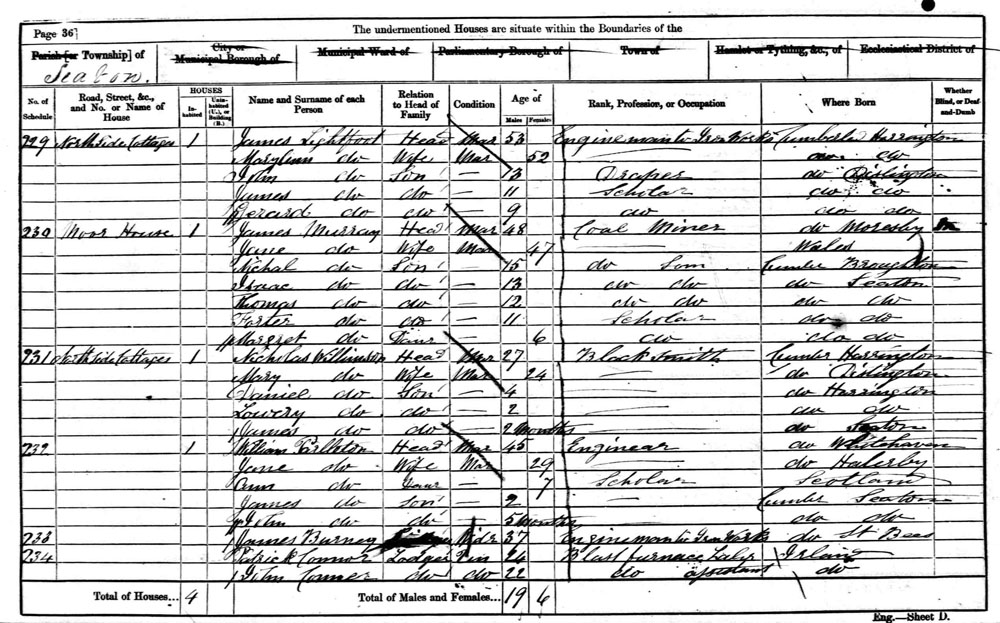 Page 36
The undermentioned Houses are situate within the Boundaries of the
Parish [or Township] of
City or Municipal Borough of
Municipal Ward of
Parliamentary Borough of
Town of
Hamlet or Tything, &c., of
Ecclesiastical District of
Seaton.
No. of Schedule
Road, Street, &c., and No. or Name of House
HOUSES
Inhabited
Uninhabited (U.), or Building (B.)
Name and Surname of each Person
Relation to Head of Family
Condition
Age of
Males
Females
Rank, Profession, or Occupation
Where Born
Whether Blind, or Deaf-and-Dumb
229 Northside Cottages 1 James Lightfoot Head Mar 53 Engineman to Iron Works Cumberld Harrington
do Wife Mar 52 — do do
John do Son — 13 Draper do Distington
James do do — 11 Scholar do do
Gerard do do — 9 do do do
230 Moor House 1 James Murray Head Mar 48 Coal Miner do Moresby
Jane do Wife Mar 47 Wales
Nichal do Son 15 do Son Cumber Broughton
Isaac do do — 13 do do do Seaton
Thomas do do — 12 do do do do
Forster do do — 11 Scholar do do
Margret do Daur — 6 do do do
231 Northside Cottages 1 Nicholas Wilkinson Head Mar 27 Black Smith Cumber Harrington
Mary do Wife Mar 24 — do Distington
Daniel do Son 4 — do Harrington
Lowery do do — 2 — do do
James do do 2 Months do Seaton
232 1 William Carlleton Head Mar 45 Enginear do Whitehaven
Jane do Wife Mar 29 — do
Ann do Daur 7 Scholar Scotland
James do Son — 2 — Cumber Seaton
John do do 5 Months do do
233 James Burney Widr 37 Engineman to Iron Works do St Bees
234 Patrick Connor Lodger Un 24 Blast furnace Irland
John Conner do do 22 do assistant do
Total of Houses... 4
Total of Males and Females... 19 6
Eng.—Sheet D.